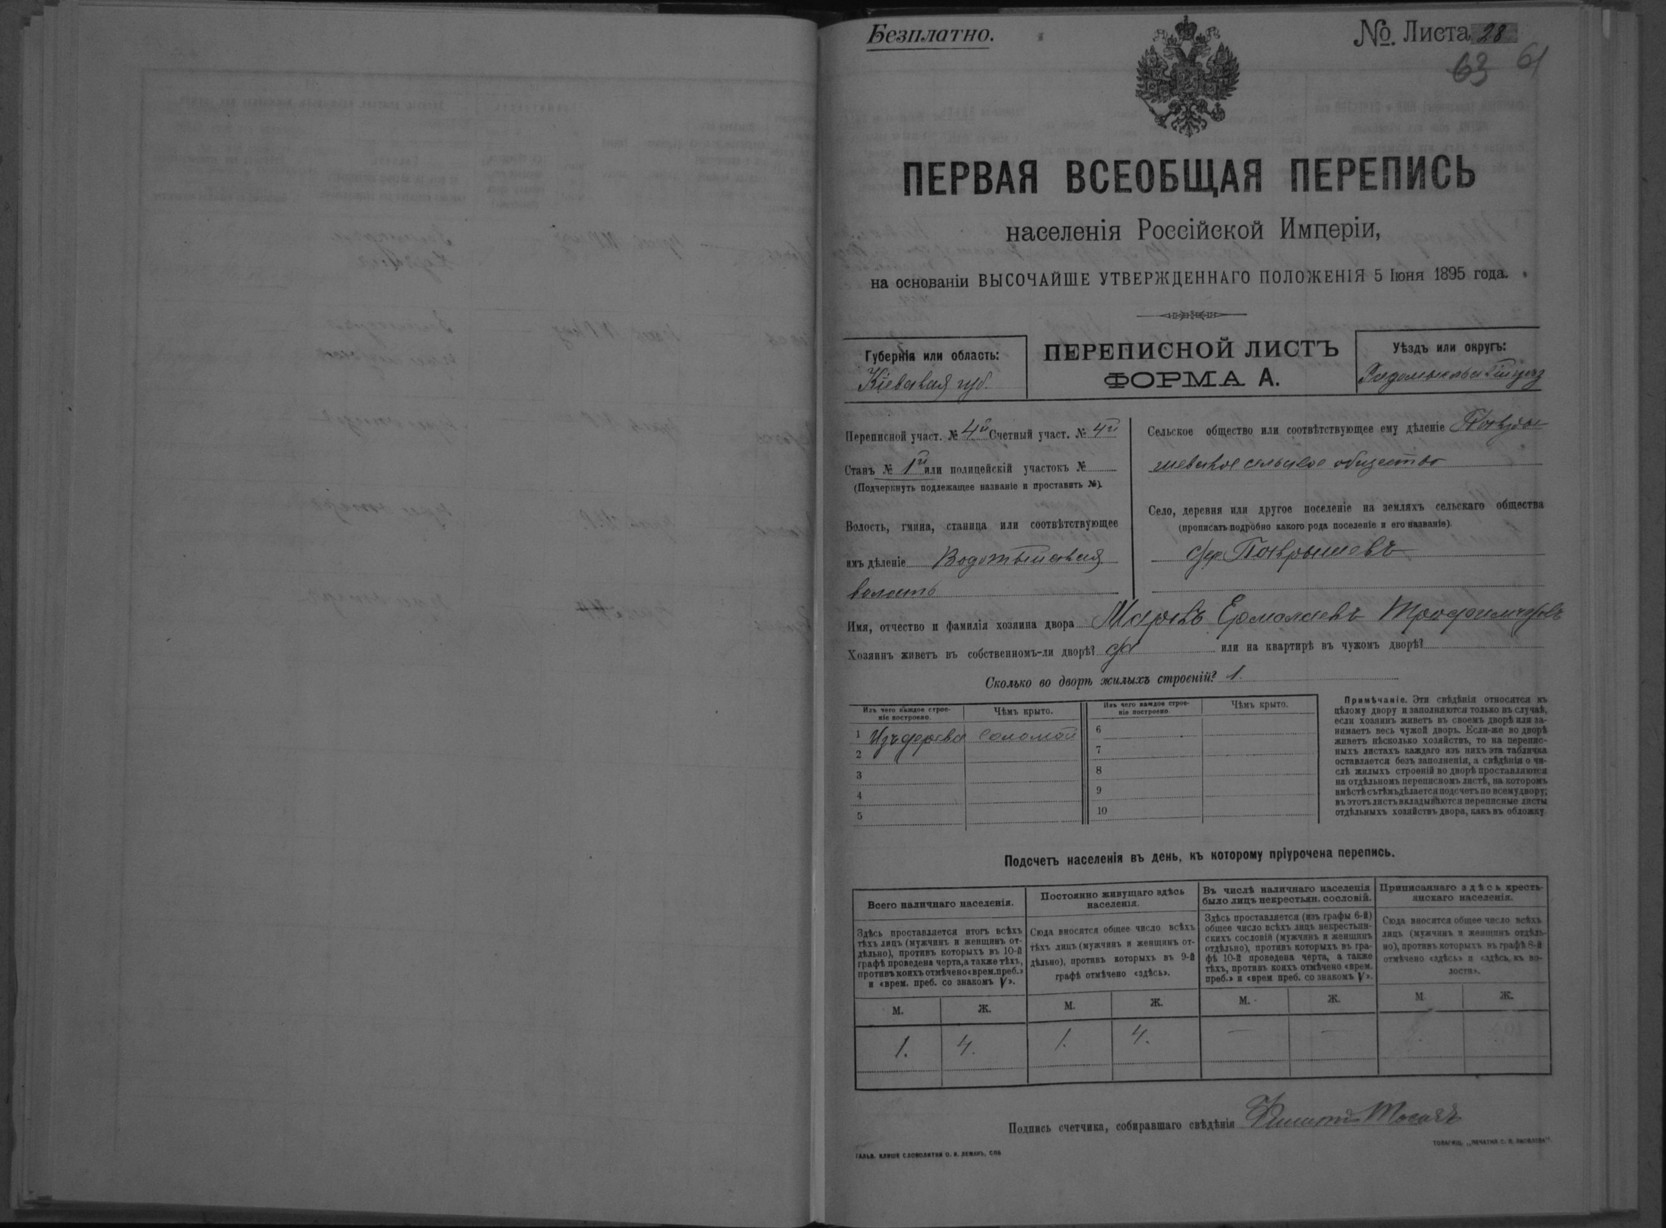 Безплатно.
№. Листа 28
63 61
ПЕРВАЯ ВСЕОБЩАЯ ПЕРЕПИСЬ
населенія Россійской Имперіи,
на основаніи ВЫСОЧАЙШЕ УТВЕРЖДЕННАГО ПОЛОЖЕНІЯ 5 Іюня 1895 года.
Губернія или область:
Кіевская губ.
ПЕРЕПИСНОЙ ЛИСТЪ
ФОРМА А.
Уѣздъ или округъ:
Радомысльскій уезд
Переписной участ. № 4й Счетный участ. № 4й
Станъ № 1й или полицейскій участокъ №
(Подчеркнуть подлежащее названіе и проставить №).
Волость, гмина, станица или соотвѣтствующее
имъ дѣленіе Водотыйская
волость
Сельское общество или соотвѣтствующее ему дѣленіе Покры
шевское сельское общество
Село, деревня или другое поселеніе на земляхъ сельскаго общества
(прописать подробно какого рода поселеніе и его названіе).
дер. Покрышевъ
Имя, отчество и фамилія хозяина двора Марко Ермолаевъ
Хозяинъ живетъ въ собственномъ-ли дворѣ? да или на квартирѣ въ чужомъ дворѣ?
Сколько во дворѣ жилыхъ строеній? 1.
Изъ чего каждое строе-
ніе построено.
Чѣмъ крыто.
Изъ чего каждое строе-
ніе построено.
Чѣмъ крыто.
1 Изъ дерева соломой
2
3
4
5
6
7
8
9
10
Примѣчаніе. Эти свѣдѣнія относятся къ
цѣлому двору и заполняются только въ случаѣ,
если хозяинъ живетъ въ своемъ дворѣ или за-
нимаетъ весь чужой дворъ. Если-же во дворѣ
живетъ нѣсколько хозяйствъ, то на перепис-
ныхъ листахъ каждаго изъ нихъ эта табличка
оставляется безъ заполненія, а свѣдѣнія о чи-
слѣ жилыхъ строеній во дворѣ проставляются
на отдѣльномъ переписномъ листѣ, на которомъ
вмѣстѣ съ тѣмъ дѣлается подсчетъ по всему двору;
въ этотъ листъ вкладываются переписные листы
отдѣльныхъ хозяйствъ двора, какъ въ обложку.
Подсчетъ населенія въ день, къ которому пріурочена перепись.
Всего наличнаго населенія.
Здѣсь проставляется итогъ всѣхъ
тѣхъ лицъ (мужчинъ и женщинъ от-
дѣльно), противъ которыхъ въ 10-й
графѣ проведена черта, а также тѣхъ,
противъ коихъ отмѣчено «врем. преб.»
и «врем. преб. со знакомъ V».
Постоянно живущаго здѣсь
населенія.
Сюда вносится общее число всѣхъ
тѣхъ лицъ (мужчинъ и женщинъ от-
дѣльно), противъ которыхъ въ 9-й
графѣ отмѣчено «здѣсь».
Въ числѣ наличнаго населенія
было лицъ некрестьян. сословій.
Здѣсь проставляется (изъ графы 6-й)
общее число всѣхъ лицъ некрестьян-
скихъ сословій (мужчинъ и женщинъ
отдѣльно), противъ которыхъ въ гра-
фѣ 10-й проведена черта, а также
тѣхъ, противъ коихъ отмѣчено «врем.
преб.» и «врем преб. со знакомъ V».
Приписаннаго здѣсь кресть-
янскаго населенія.
Сюда вносится общее число всѣхъ
лицъ (мужчинъ и женщинъ отдѣль-
но), противъ которыхъ въ графѣ 8-й
отмѣчено «здѣсь» и «здѣсь, въ во-
лости».
М. Ж. М. Ж. М. Ж. М. Ж.
1. 4. 1. 4. — —
Подпись счетчика, собиравшаго свѣдѣнія